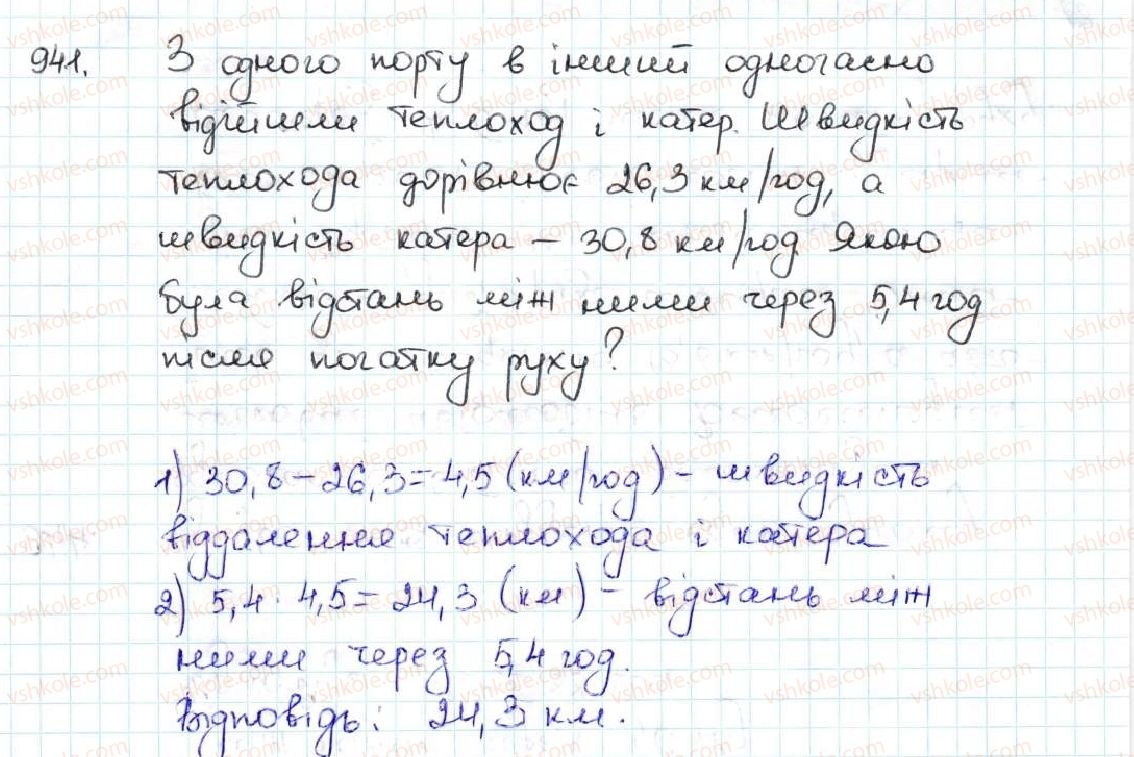 941. З одного порту в інший одночасно
відійшли теплоход і катер. Швидкість
теплохода дорівнює 26,3 км/год, а
швидкість катера – 30,8 км/год. Якою
була відстань між ними через 5,4 год
після початку руху?
1) 30,8 – 26,3 = 4,5 (км/год) – швидкість
віддалення теплохода і катера
2) 5,4 · 4,5 = 24,3 (км) – відстань між
ними через 5,4 год.
Відповідь: 24,3 км.
vshkole.com